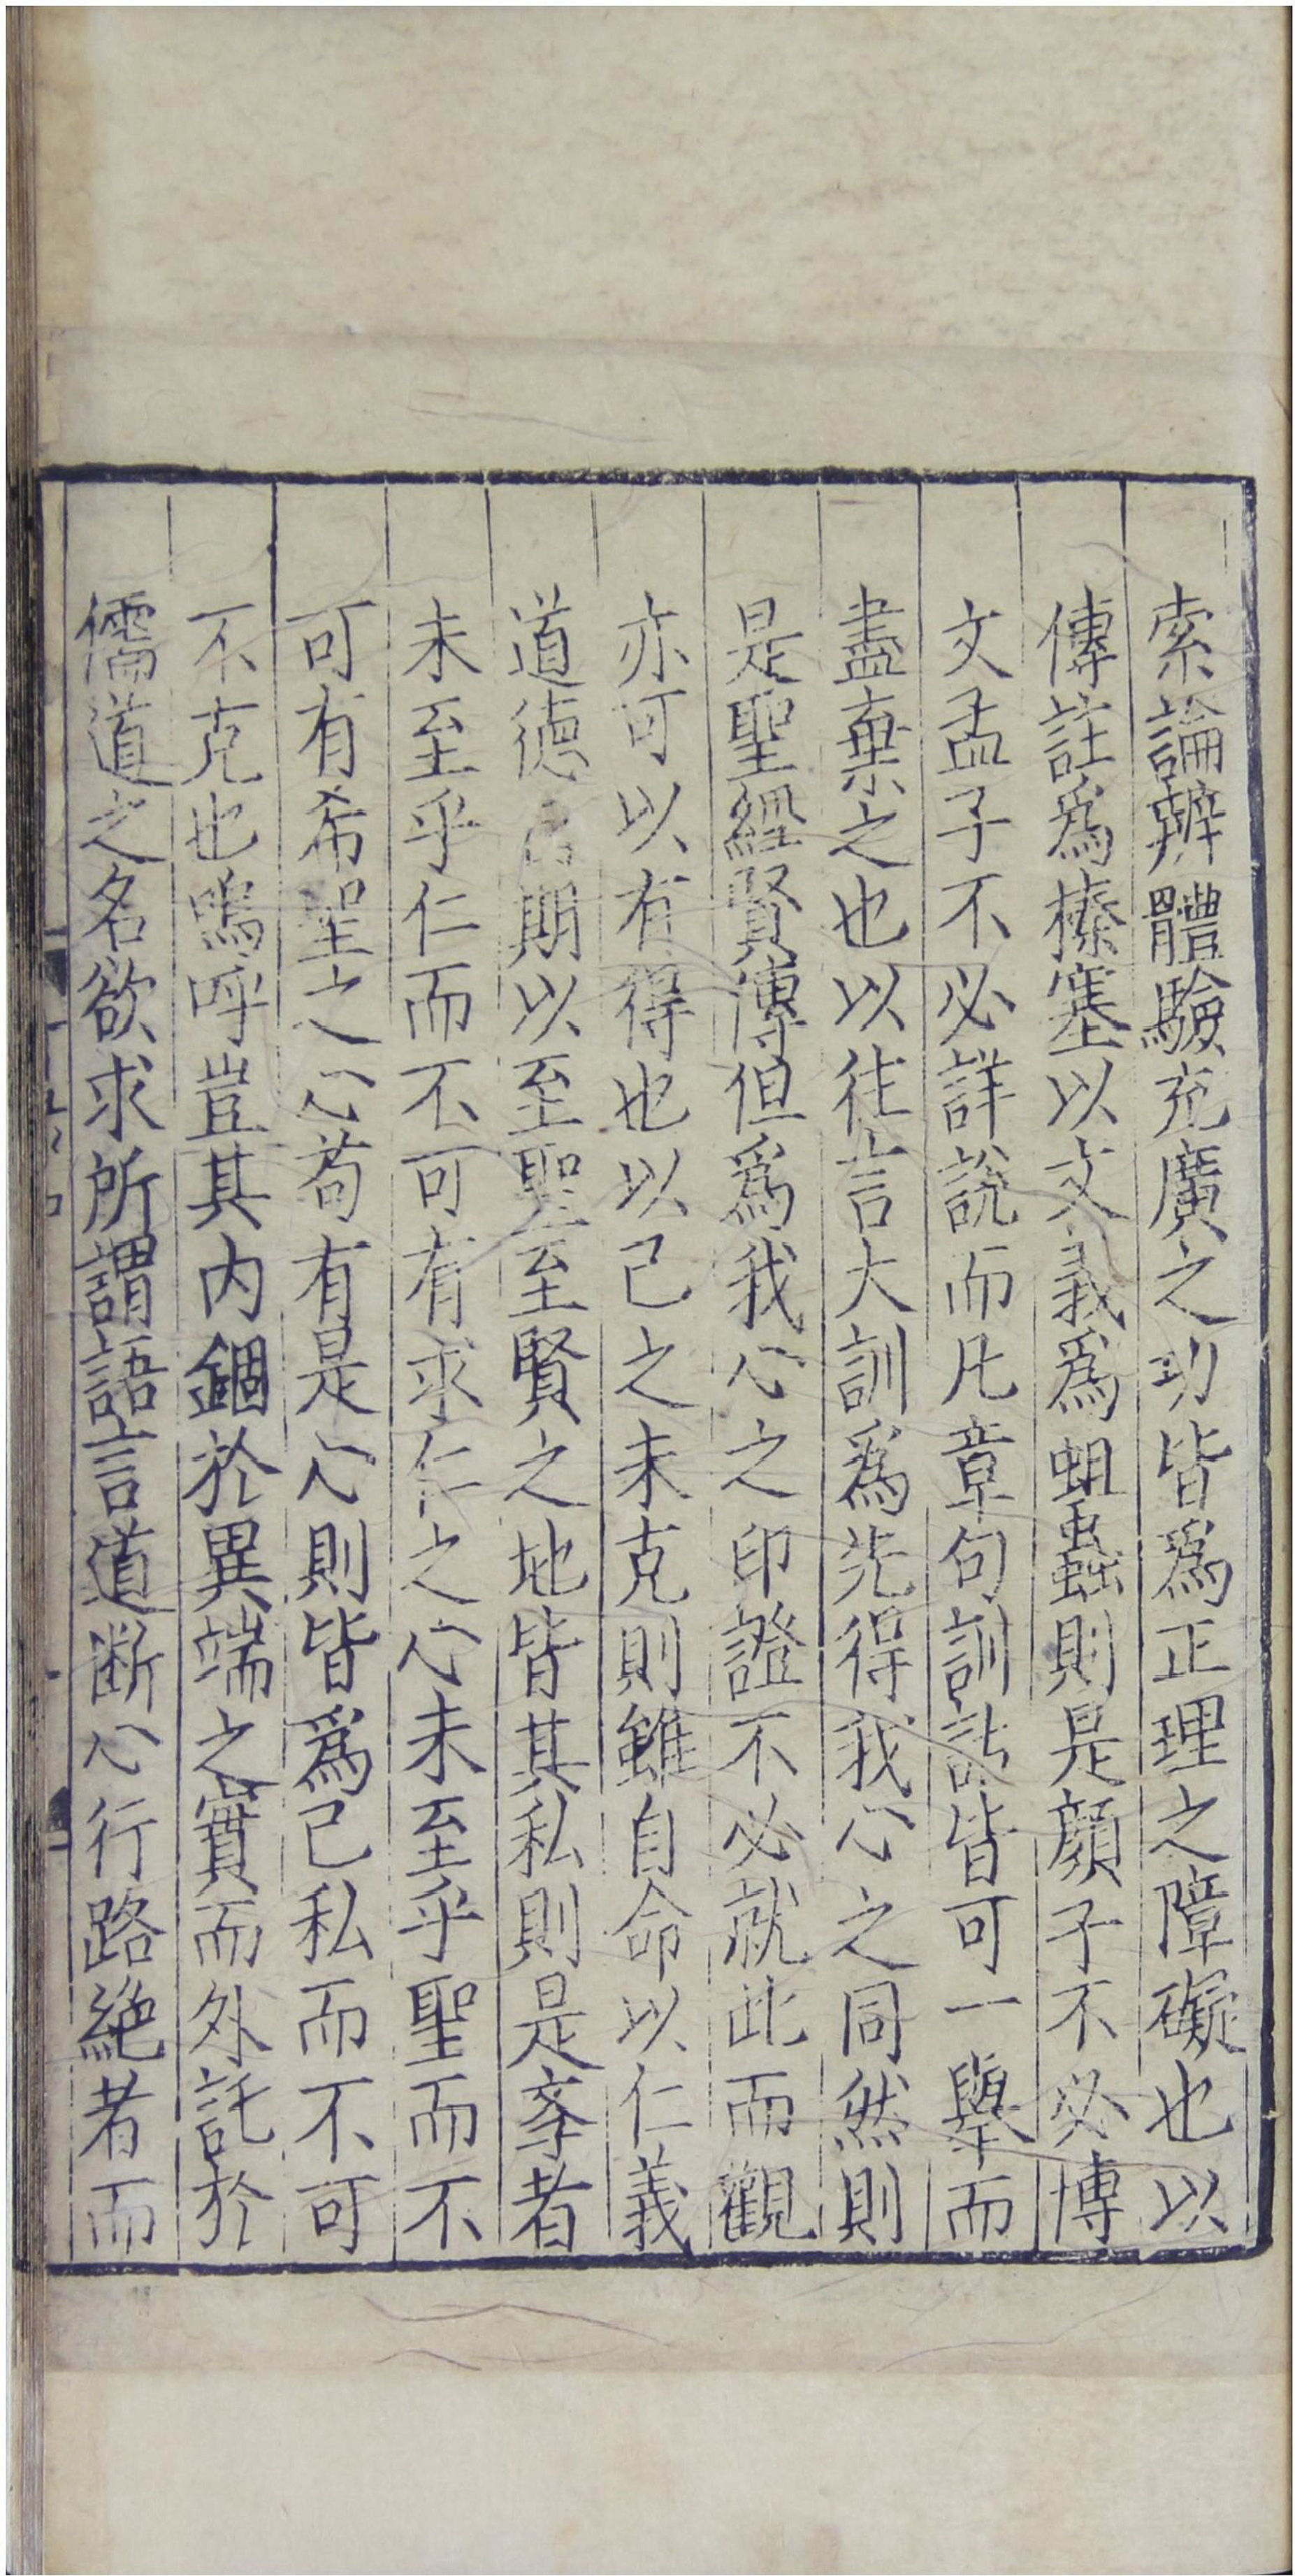 索論辨體驗充廣之功皆為正理之障礙也以
傳註為榛塞以文義為蛆蟲則是顔子不必博
文孟子不必詳說而凡章句訓詁皆可一舉而
盡棄之也以往言大訓為先得我心之同然則
是聖經賢傳但為我心之印證不必就此而觀
亦可以有得也以己之未克則雖自命以仁義
道德期以至聖至賢之地皆其私則是學者
未至乎仁而不可有求仁之心未至乎聖而不
可有希聖之心苟有是心則皆為己私而不可
不克也嗚呼豈其内錮於異端之實而外託於
儒道之名欲求所謂語言道断心行路絶者而